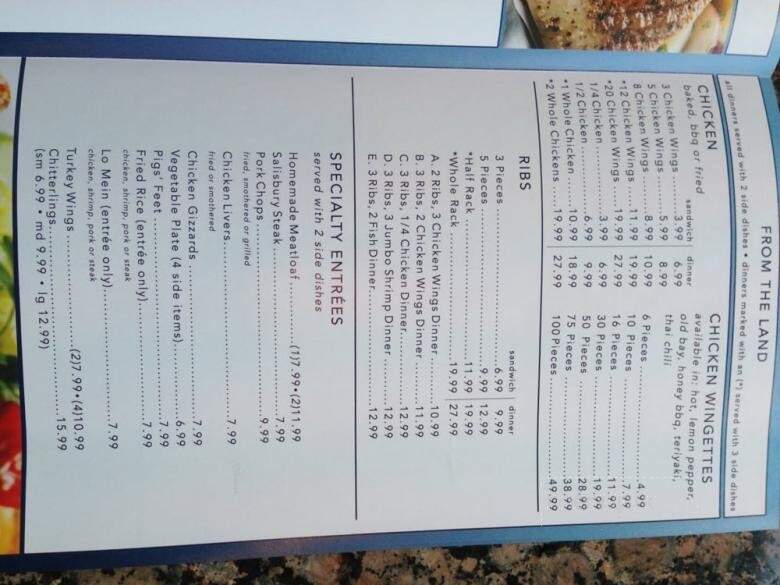 FROM THE LAND
all dinners served with 2 side dishes • dinners marked with an (*) served with 3 side dishes
CHICKEN
baked, bbq or fried
sandwich dinner
3 Chicken Wings ........ 3.99 6.99
5 Chicken Wings ........ 5.99 8.99
8 Chicken Wings ........ 8.99 10.99
*12 Chicken Wings ...... 11.99 19.99
*20 Chicken Wings ...... 19.99 27.99
1/4 Chicken ............ 3.99 6.99
1/2 Chicken ............ 6.99 9.99
*1 Whole Chicken ....... 10.99 18.99
*2 Whole Chickens ...... 19.99 27.99
CHICKEN WINGETTES
available in: hot, lemon pepper,
old bay, honey bbq, teriyaki,
thai chili
6 Pieces ............ 4.99
10 Pieces ........... 7.99
16 Pieces ........... 11.99
30 Pieces ........... 19.99
50 Pieces ........... 28.99
75 Pieces ........... 38.99
100 Pieces .......... 49.99
RIBS
sandwich dinner
3 Pieces ............ 6.99 9.99
5 Pieces ............ 9.99 12.99
*Half Rack .......... 11.99 19.99
*Whole Rack ......... 19.99 27.99
A. 2 Ribs, 3 Chicken Wings Dinner ........ 10.99
B. 3 Ribs, 2 Chicken Wings Dinner ........ 11.99
C. 3 Ribs, 1/4 Chicken Dinner ........ 12.99
D. 3 Ribs, 3 Jumbo Shrimp Dinner ........ 12.99
E. 3 Ribs, 2 Fish Dinner ........ 12.99
SPECIALTY ENTRÉES
served with 2 side dishes
Homemade Meatloaf ........ (1)7.99•(2)11.99
Salisbury Steak ........ 7.99
Pork Chops ........ 9.99
fried, smothered or grilled
Chicken Livers ........ 7.99
fried or smothered
Chicken Gizzards ........ 7.99
Vegetable Plate (4 side items) ........ 6.99
Pigs' Feet ........ 7.99
Fried Rice (entrée only) ........ 7.99
chicken, shrimp, pork or steak
Lo Mein (entrée only) ........ 7.99
chicken, shrimp, pork or steak
Turkey Wings ........ (2)7.99•(4)10.99
Chitterlings ........ 15.99
(sm 6.99 • md 9.99 • lg 12.99)